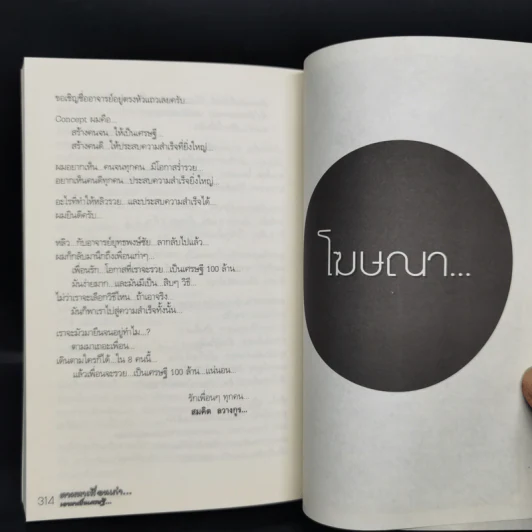 ขอเชิญชื่ออาจารย์อยู่ตรงหัวแถวเลยครับ...
Concept ผมคือ...
สร้างคนจน...ให้เป็นเศรษฐี...
สร้างคนดี...ให้ประสบความสำเร็จที่ยิ่งใหญ่...
ผมอยากเห็น...คนจนทุกคน...มีโอกาสร่ำรวย...
อยากเห็นคนดีทุกคน...ประสบความสำเร็จยิ่งใหญ่...
อะไรที่ทำให้หลิวรวย...และประสบความสำเร็จได้...
ผมยินดีครับ...
หลิว...กับอาจารย์ยุทธพงษ์ชัย...ลากลับไปแล้ว...
ผมก็กลับมานึกถึงเพื่อนเก่าๆ...
เพื่อนรัก...โอกาสที่เราจะรวย...เป็นเศรษฐี 100 ล้าน...
มันง่ายมาก...และมันมีเป็น...สิบๆ วิธี...
ไม่ว่าเราจะเลือกวิธีไหน...ถ้าเอาจริง...
มันก็พาเราไปสู่ความสำเร็จทั้งนั้น...
เราจะมัวมายืนจนอยู่ทำไม...?
ตามมาเถอะเพื่อน...
เดินตามใครก็ได้...ใน 8 คนนี้...
แล้วเพื่อนจะรวย...เป็นเศรษฐี 100 ล้าน...แน่นอน...
รักเพื่อนๆ ทุกคน
สมคิด ลวางกูร...
314
โฆษณา...